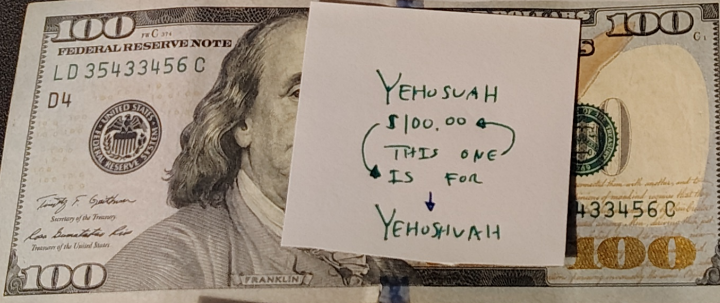 100
FEDERAL RESERVE NOTE
LD 35433456 C
D4
UNITED STATES
FEDERAL RESERVE
Secretary of the Treasury.
Treasurer of the United States
100
FRANKLIN
YEHUSUAH
$100.00
THIS ONE
IS FOR
YEHUSHUAH
DOLLARS
100
433456 C
100